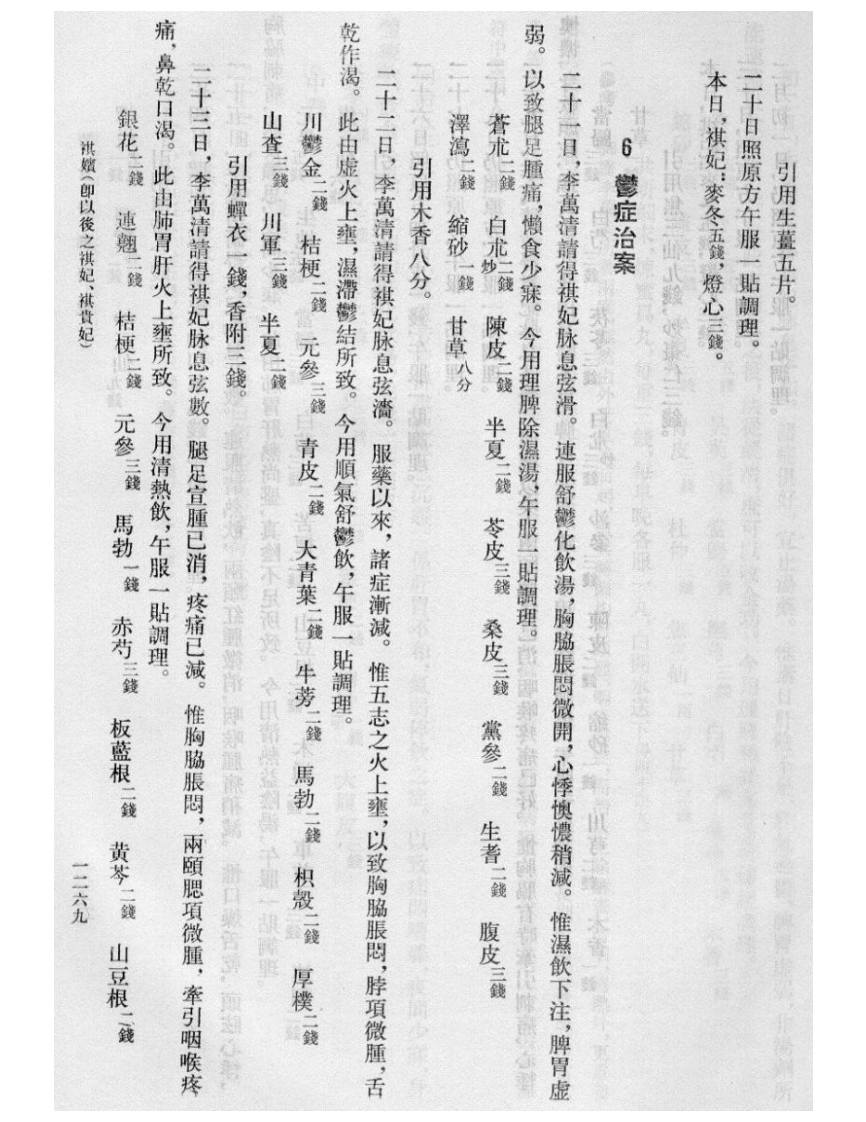 引用生薑五片。
二十日照原方午服一貼調理。
本日，祺妃：麥冬五錢，燈心三錢。
6 鬱症治案
二十一日，李萬清請得祺妃脉息弦滑。連服舒鬱化飲湯，胸脇脹悶微開，心悸懊憹稍減。惟濕飲下注，脾胃虛
弱。以致腿足腫痛，懶食少寐。今用理脾除濕湯，午服一貼調理。
蒼朮二錢 白朮二錢炒 陳皮二錢 半夏二錢 苓皮三錢 桑皮三錢 黨參二錢 生耆二錢 腹皮三錢
澤瀉二錢 縮砂一錢 甘草八分
引用木香八分。
二十二日，李萬清請得祺妃脉息弦濇。服藥以來，諸症漸減。惟五志之火上壅，以致胸脇脹悶，脖項微腫，舌
乾作渴。此由虛火上壅，濕滯鬱結所致。今用順氣舒鬱飲，午服一貼調理。
川鬱金二錢 桔梗二錢 元參三錢 青皮二錢 大青葉二錢 牛蒡二錢 馬勃二錢 枳殼二錢 厚樸二錢
山查三錢 川軍三錢 半夏二錢
引用蟬衣一錢，香附三錢。
二十三日，李萬清請得祺妃脉息弦數。腿足宣腫已消，疼痛已減。惟胸脇脹悶，兩頤腮項微腫，牽引咽喉疼
痛，鼻乾口渴。此由肺胃肝火上壅所致。今用清熱飲，午服一貼調理。
銀花二錢 連翹二錢 桔梗二錢 元參三錢 馬勃一錢 赤芍三錢 板藍根二錢 黃芩二錢 山豆根二錢
祺嬪（卽以後之祺妃、祺貴妃）
一二六九